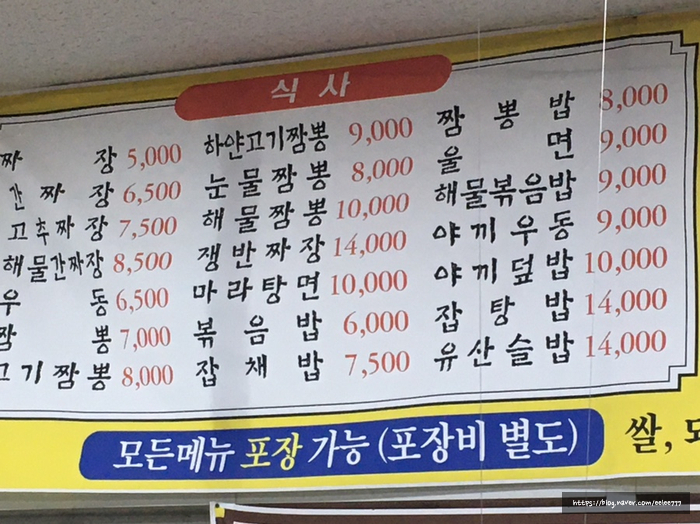 식사
짜장 5,000
간짜장 6,500
고추짜장 7,500
해물간짜장 8,500
우동 6,500
짬뽕 7,000
고기짬뽕 8,000
하얀고기짬뽕 9,000
눈물짬뽕 8,000
해물짬뽕 10,000
쟁반짜장 14,000
마라탕면 10,000
볶음밥 6,000
잡채밥 7,500
짬뽕밥 8,000
울면 9,000
해물볶음밥 9,000
야끼우동 9,000
야끼덮밥 10,000
잡탕밥 14,000
유산슬밥 14,000
모든메뉴 포장 가능 (포장비 별도)
쌀,
https://blog.naver.com/eelee777